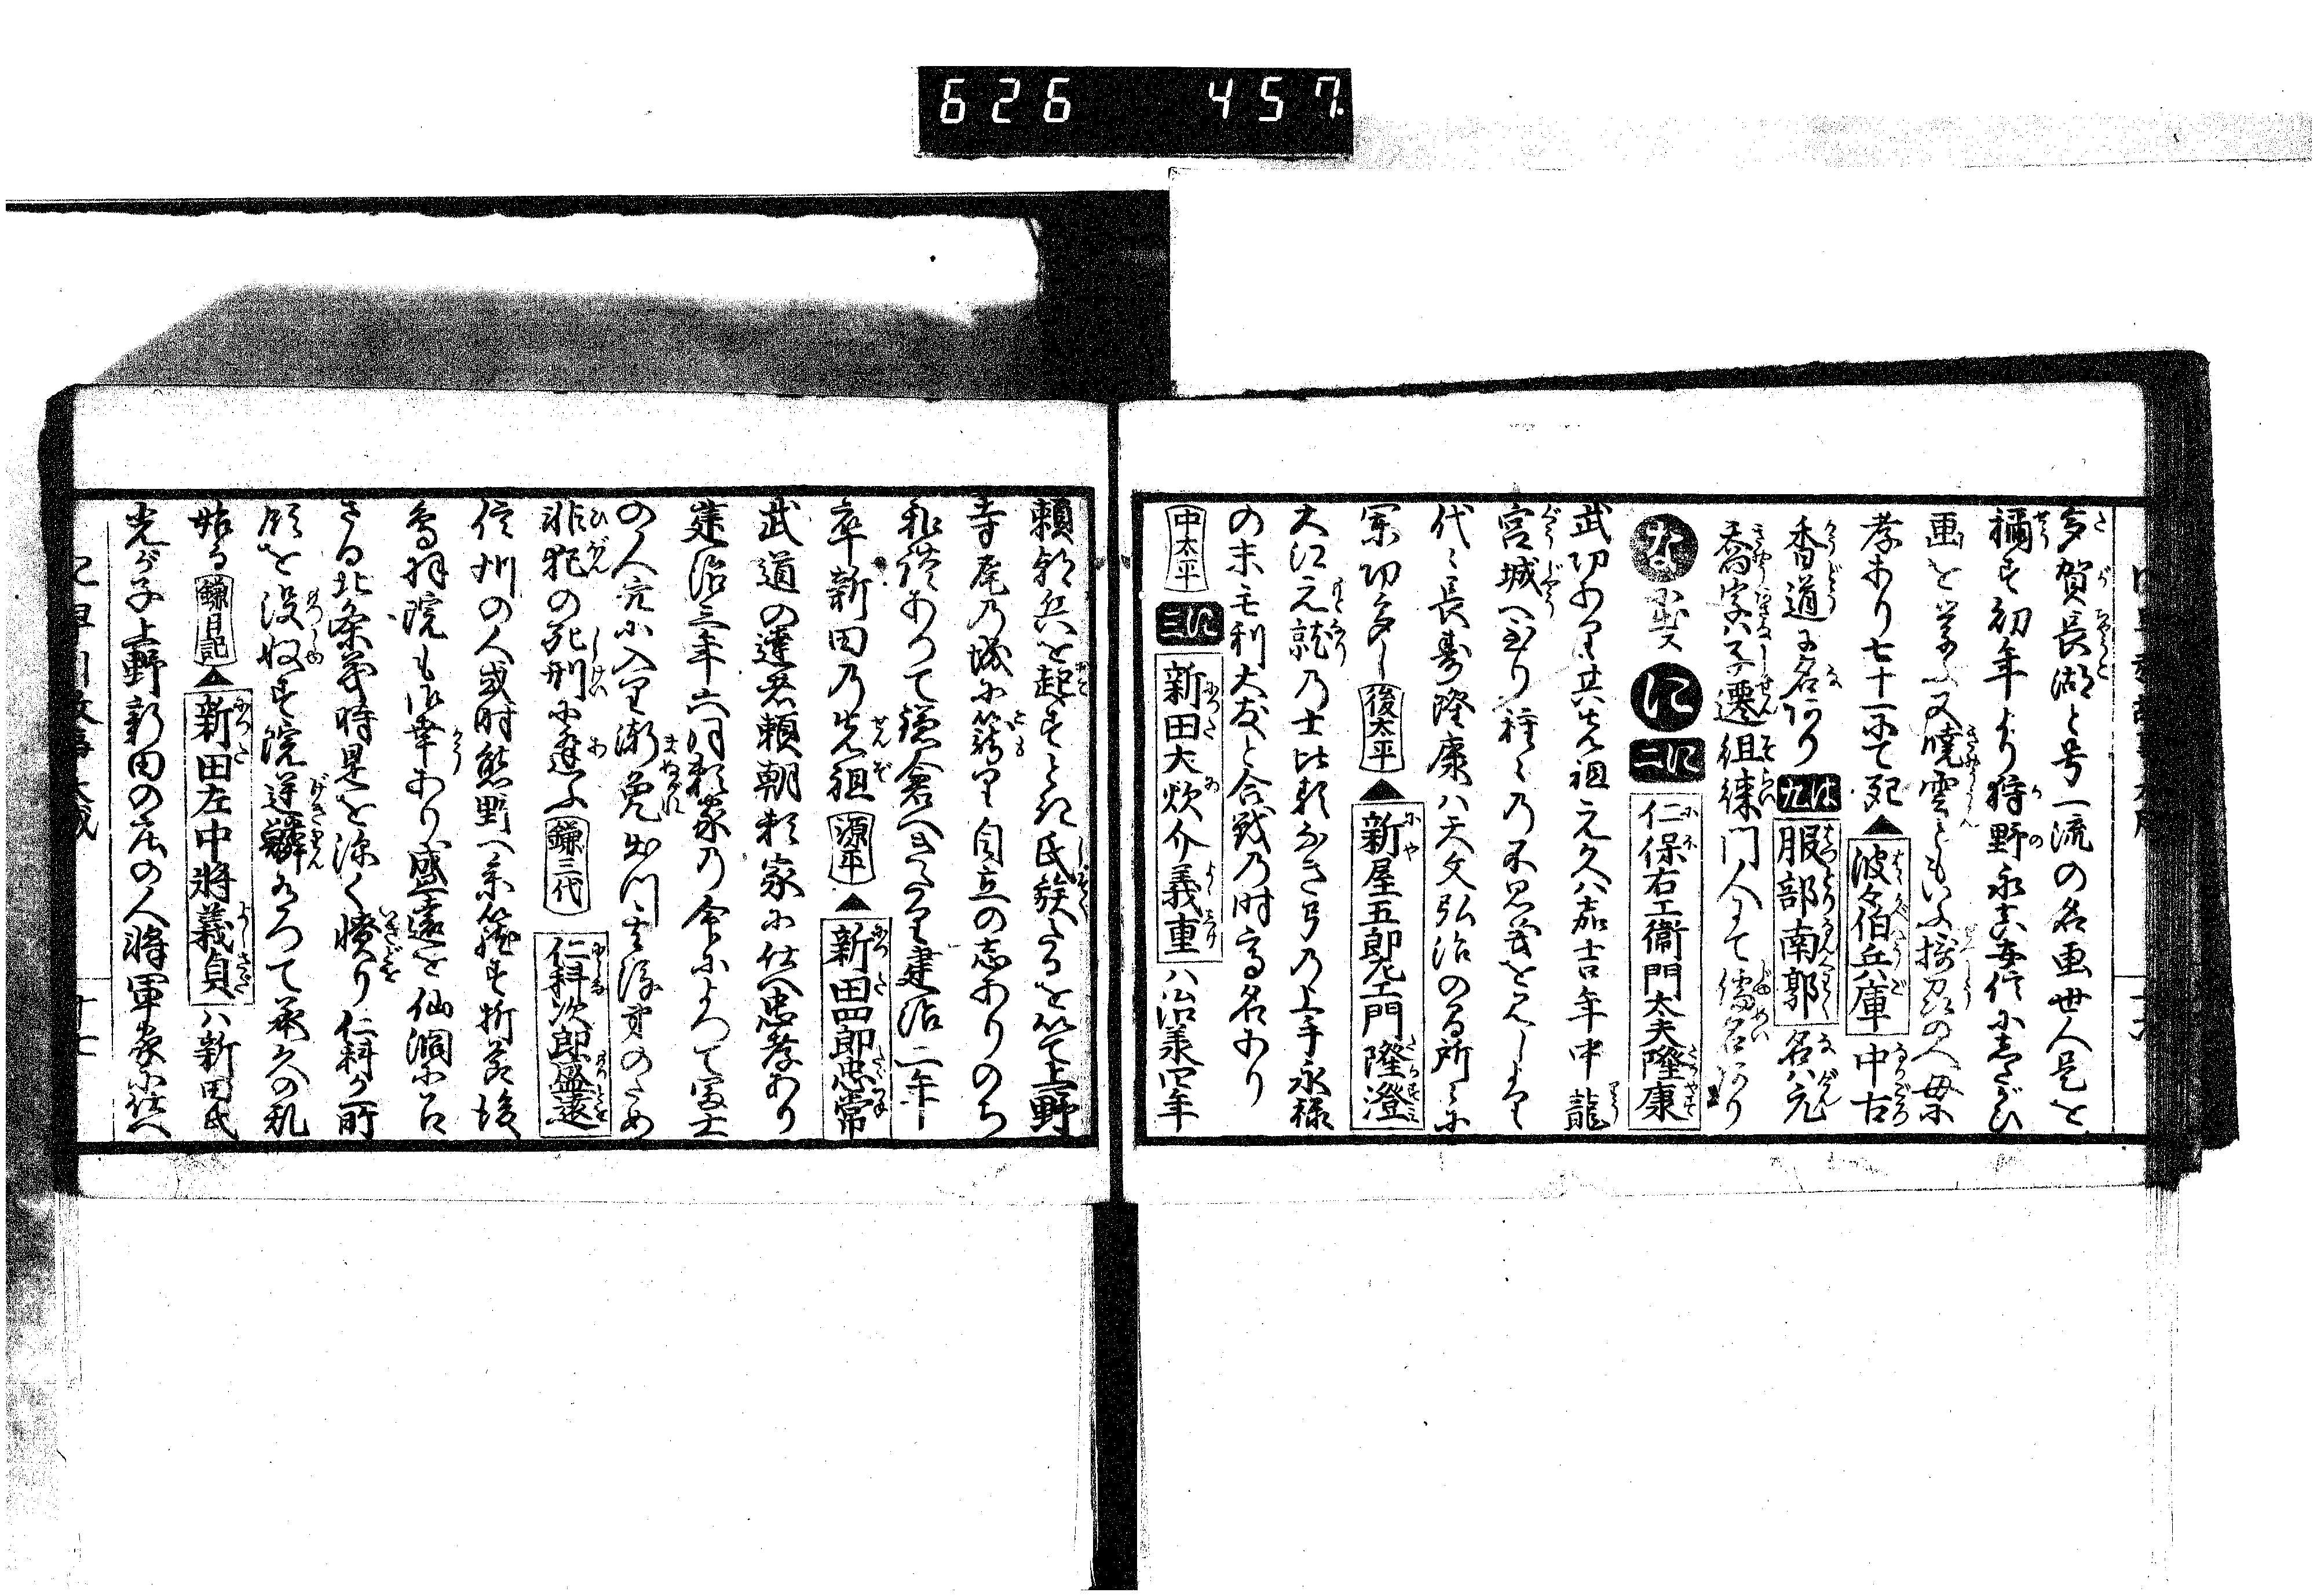 626 457
多賀長湖と号一流の名画世人是を
称す初年より狩野永真安信にしたがひ
画を学ふ又暁雲ともいふ按るの人母に
孝あり七十一にて死▲波々伯兵庫中古
香道に名あり九は服部南郭名ハ元
喬字ハ子遷徂徠門人にて儒名あり
に二に仁保右工衛門太夫隆康
武功あり其先祖元久ハ嘉吉年中龍
宮城へ至り種々の不思儀を見しより
代々長寿隆康ハ天文弘治のる所々に
軍功多し後太平▲新屋五郎左工門隆澄
大江元就の士比類なき弓の上手永禄
の末毛利大友と合戦の時高名あり
中太平三に新田大炊介義重ハ治承四年
頼朝兵を起すと氏族たるを以て上野
寺尾の城に籠り自立の志ありのち
和談あつて鎌倉へきたる建治二年
卒新田の先祖源平▲新田四郎忠常
武道の達者頼朝頼家に仕へ忠孝あり
建治三年六月頼家の命によつて冨士
の人穴に入り漸免出づ其後弟のため
非犯の死刑に逢ふ鎌三代仁科次郎盛遠
信州の人或时熊野へ参籠す折节後
鳥羽院も御幸あり盛遠を仙洞に召
さる北条義時是を深く憤り仁科が所
領を没収す院逆鱗有つて承久の乱
始る鎌日記▲新田左中将義貞ハ新田氏
光が子上野新田の庄の人将軍家に仕へ